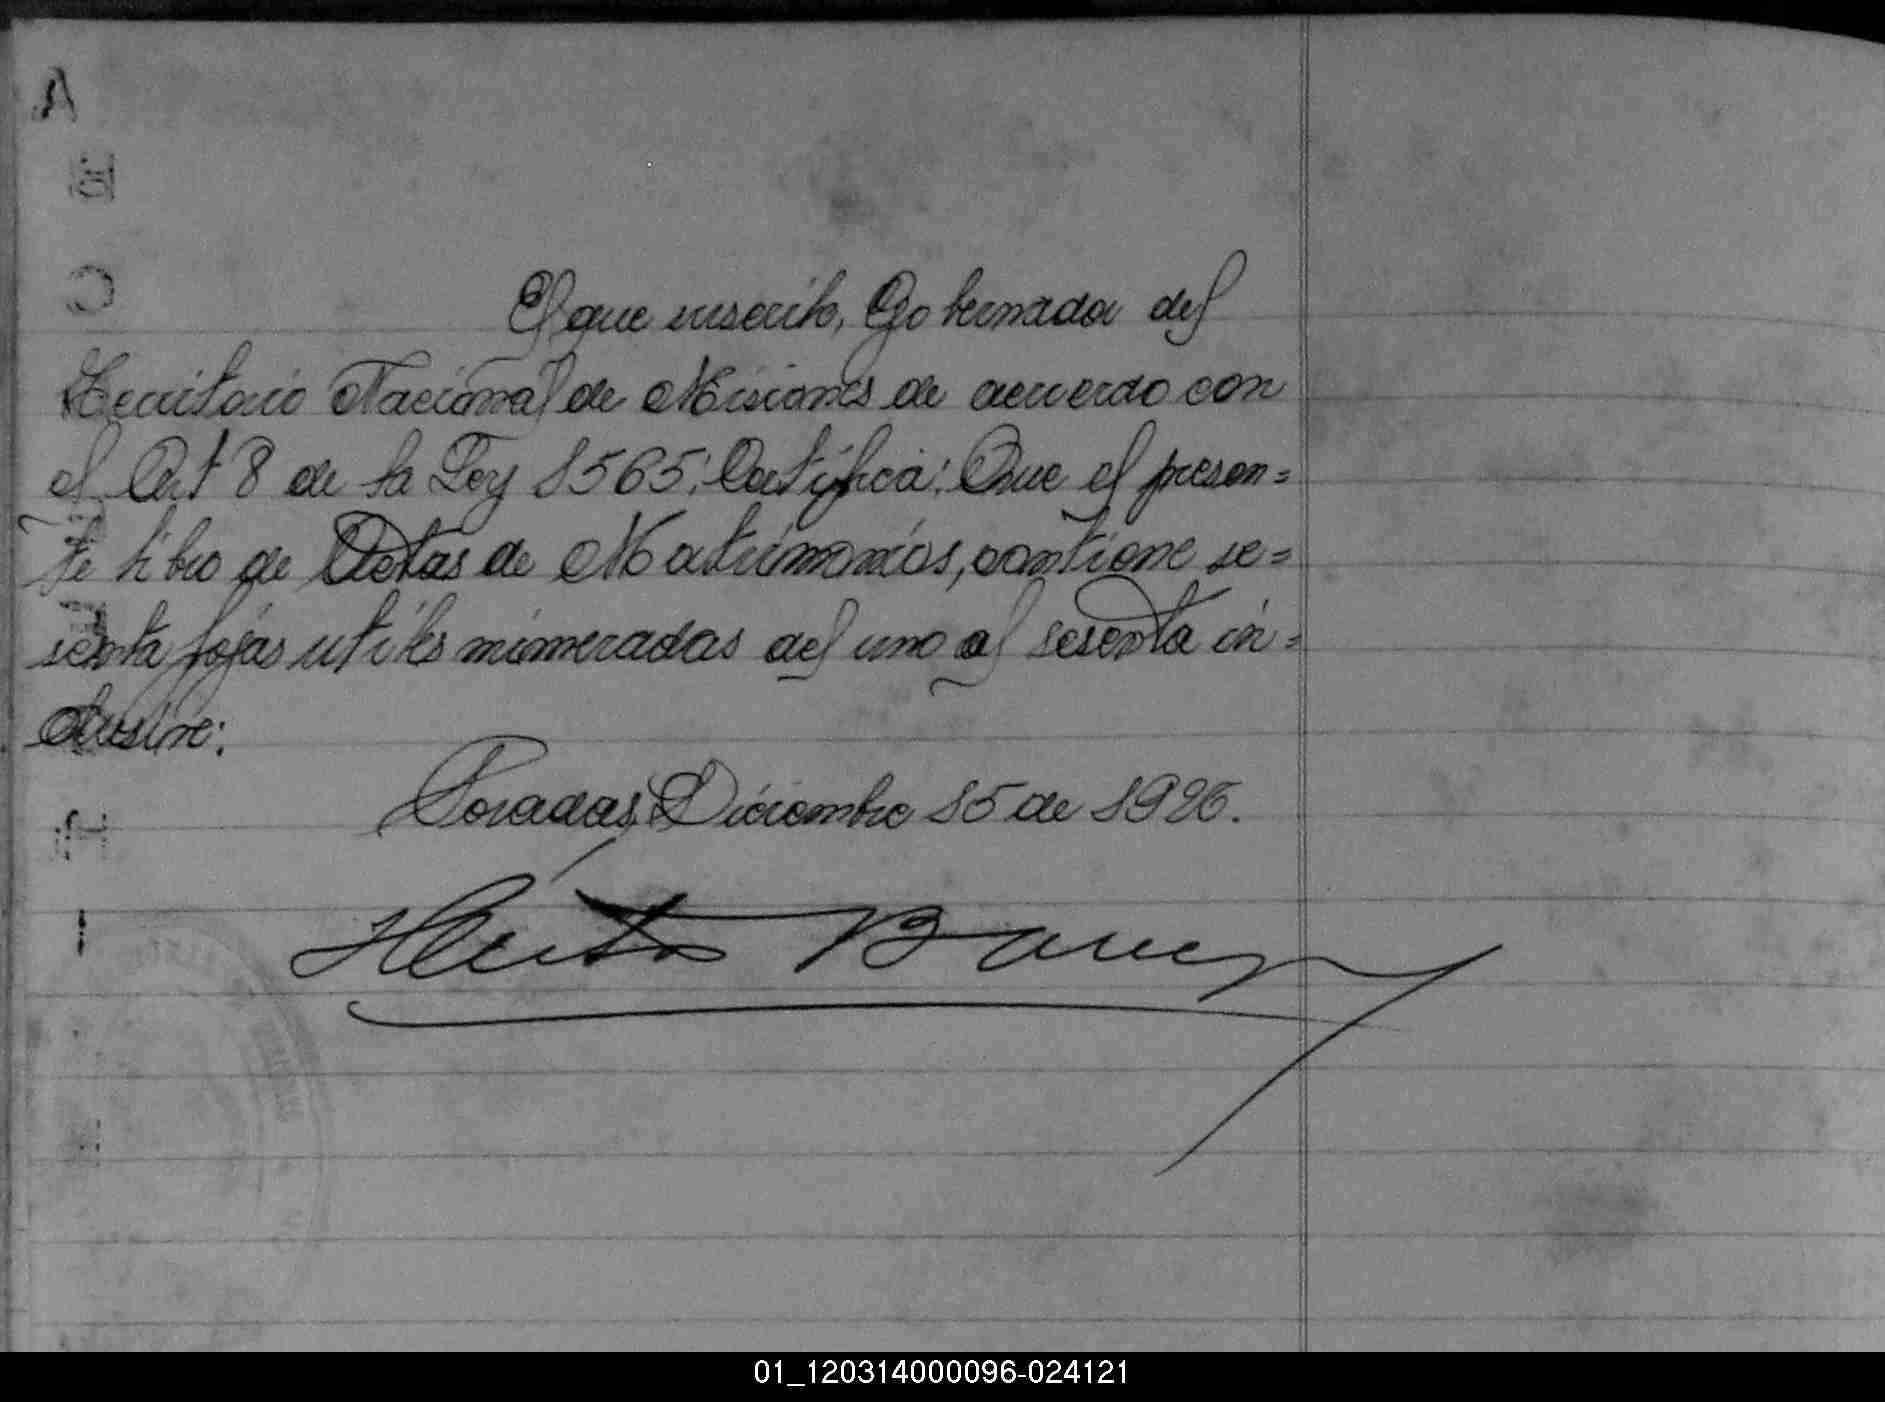 A
B
C
El que suscribe, Gobernador del
Territorio Nacional de Misiones de acuerdo con
el Art 8 de la Ley 1565; Certifica: Que el presen=
te libro de Actas de Matrimonios, contiene se=
senta fojas utiles numeradas del uno al sesenta in=
clusive:
Posadas, Diciembre 15 de 1926.
Héctor Barreyro
H
I
01_120314000096-024121